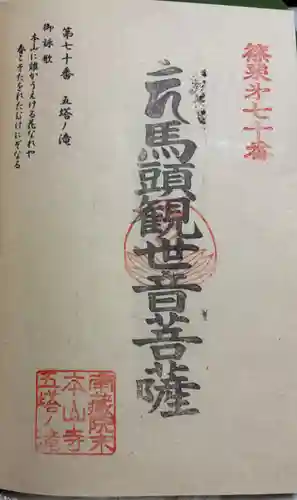 篠栗第七十番
馬頭観世音菩薩
第七十番 五塔ノ滝
御詠歌
本山に誰がうえける花なれや
春こそたをれたむけにぞなる
南蔵院末
本山寺
五塔ノ滝